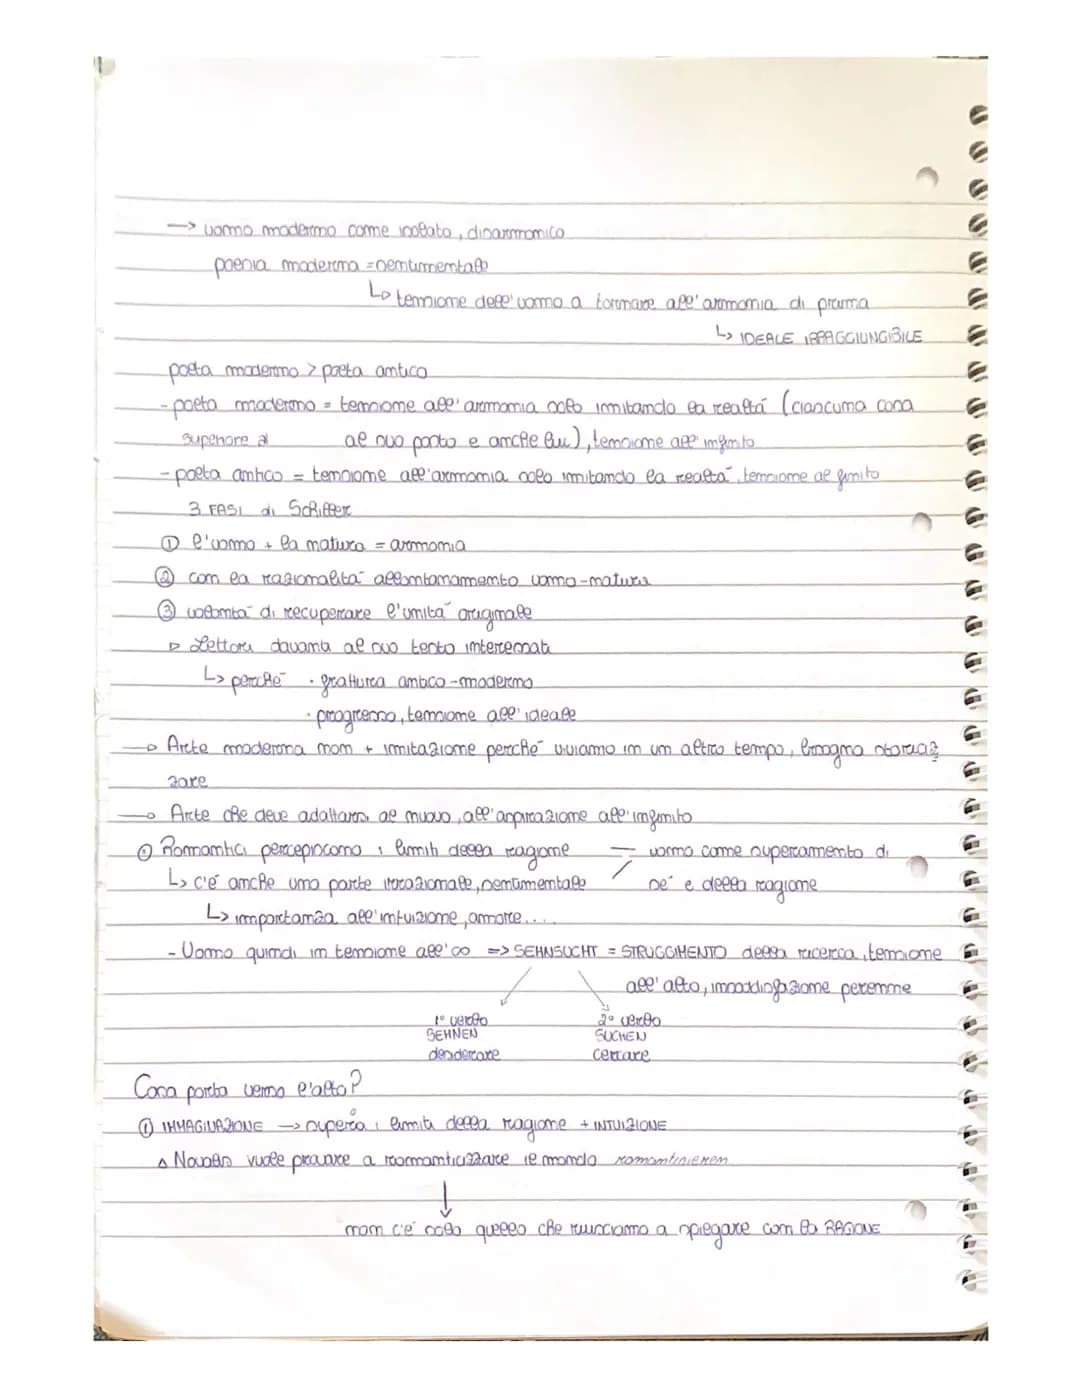 → uomo moderno come isolato, disarmonico
poesia moderna = sentimentale
↳ tensione dell'uomo a tornare all'armonia di prima
↳ IDEALE IRRAGGIUNGIBILE
poeta moderno > poeta antico
- poeta moderno = tensione all'armonia solo imitando la realtà (ciascuna cosa
superiore al al suo posto e anche lui), tensione all'infinito
- poeta antico = tensione all'armonia solo imitando la realtà, tensione al finito
3 FASI di Schiller
① l'uomo + la natura = armonia
② con la razionalità allontanamento uomo-natura
③ volontà di recuperare l'unità originale
▷ Lettori davanti al suo testo interessati
↳ perché · frattura antico-moderno
· progresso, tensione all'ideale
→ Arte moderna non + imitazione perché viviamo in un altro tempo, bisogna storiciz
zare
→ Arte che deve adattarsi al nuovo, all'aspirazione all'infinito
⊙ Romantici percepiscono i limiti della ragione — uomo come superamento di
↳ c'é anche una parte irrazionale, sentimentale sé e della ragione
↳ importanza all'intuizione, amore....
- Uomo quindi in tensione all'∞ => SEHNSUCHT = STRUGGIMENTO della ricerca, tensione
all'alto, insoddisfazione perenne
1° verbo 2° verbo
SEHNEN SUCHEN
desiderare cercare
Cosa porta verso l'alto?
① IMMAGINAZIONE → supera i limiti della ragione + INTUIZIONE
△ Novalis vuole provare a romanticizzare il mondo romantisieren
↓
non c'é solo quello che riusciamo a spiegare con la RAGIONE